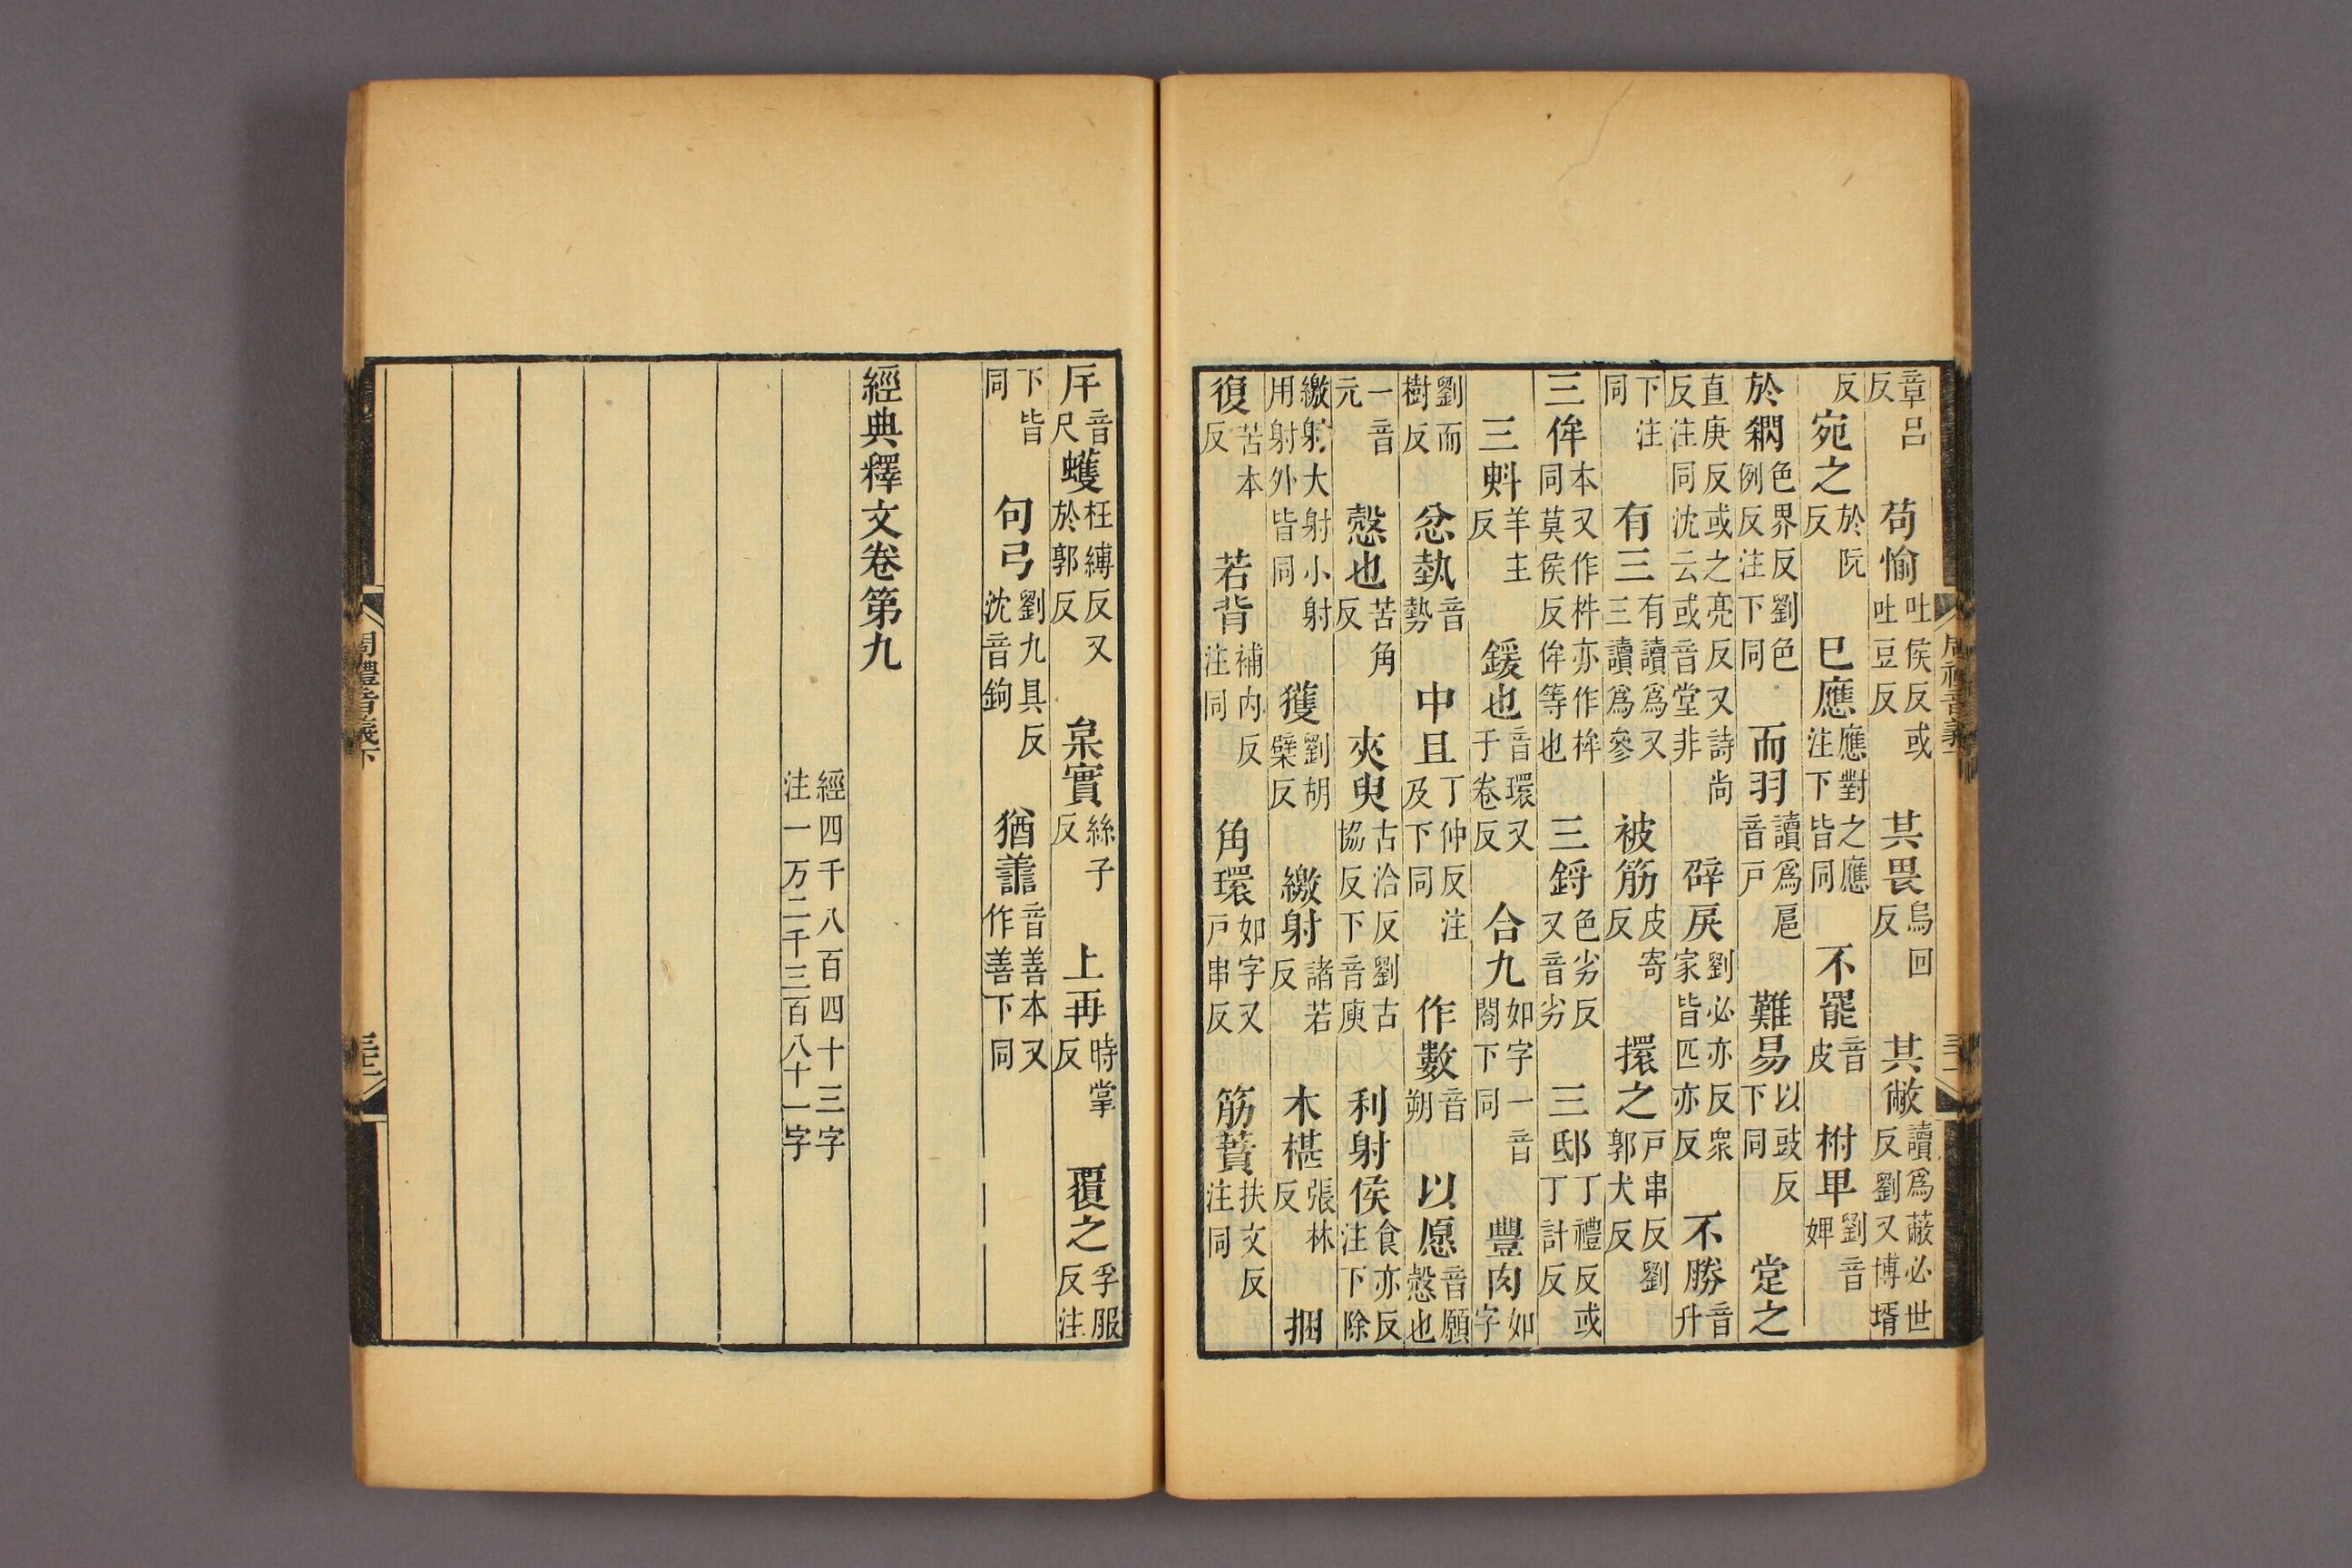 章呂反　苟愉吐侯反或吐豆反　其畏烏回反　其敝讀爲蔽必世反劉又博壻
反　宛之於阮反　已應應對之應注下皆同　不罷音皮　柎甲劉音婢
於色界反劉色例反注下同　而羽讀爲扈音戶　難易以豉反下同　堂之
直庚反或之亮反又詩尚反注同沈云或音堂非　辟戾劉必亦反衆家皆匹亦反　不勝音升
下注同　有三有讀爲又三讀爲參　被筋皮寄反　擐之戶串反劉郭犬反
三侔本又作杵亦作桙同莫侯反侔等也　三鋝色劣反又音劣　三邸丁禮反或丁計反
三㪺羊主反　鍰也音環又于卷反　合九如字一音閤下同　豐肉如字
劉而樹反　忿埶音勢　中且丁仲反注及下同　作數音朔　以愿音願愨也
一音元　愨也苦角反　夾臾古洽反劉古協反下音庾　利射侯食亦反注下除
繳射大射小射用射外皆同　獲劉胡檗反　繳射諸若反　木椹張林反　捆
復苦本反　若背補内反注同　角環如字又戶串反　筋蕡扶文反注同
周禮音義下
三十一
厈音尺　蠖枉縛反又於郭反　枲實絲子反　上再時掌反　覆之孚服反注
下皆同　句弓劉九具反沈音鉤　猶譱音善本又作善下同
經典釋文卷第九
經四千八百四十三字
注一万二千三百八十一字
周禮音義下